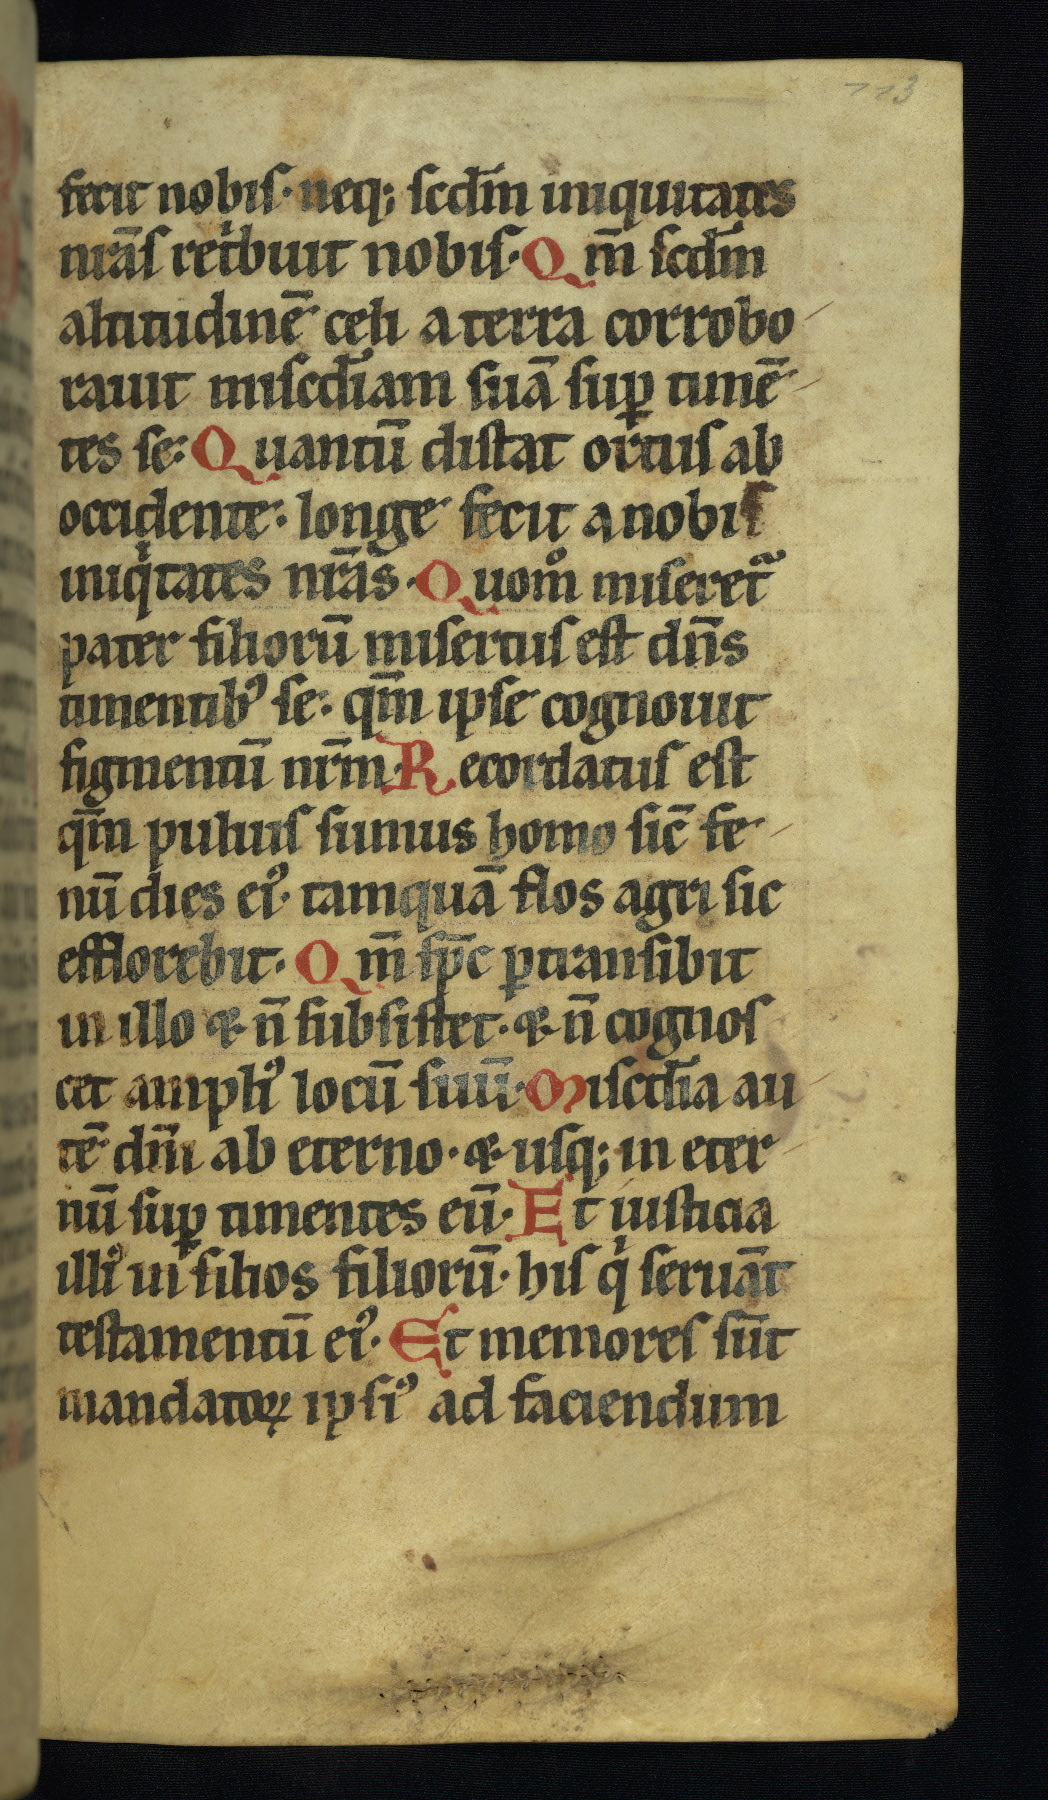 113
fecit nobiſ· neq; ſcdm̄ iniquitates
nrāſ retͥbuit nobiſ· Qm̄ ſcdm̄
altitudinē celi a terra corrobo
rauit miſcd̄iam ſuā ſuꝑ timē
tes ſe: Quantū diſtat ortuſ ab
occidente: longe fecit a nobiſ
iniqͥtates nrās· Quomͦ miſeretᷓ
pater filiorū miſertuſ eſt dn̄s
timentibꝰ ſe: qm̄ ipſe cognouit
figmentū nrm̄· Recordatuſ eſt
qm̄ puluiſ ſumus homo ſic̄ fe
nū dies eiꝰ· tamquā flos agri ſic
efflorebit· Qm̄ ſp̄c ꝑtranſibit
in illo ⁊ n̄ ſubſiſtet· ⁊ n̄ cognoſ
cet ampliꝰ locū ſuū· Miſcd̄ia au
tē dm̄i ab eterno· ⁊ uſq; in eter
nū ſuꝑ timentes eū· Et iuſticia
illiꝰ in filios filiorū· hiſ qͥ ſeruāt
teſtamentū eiꝰ· Et memoreſ ſūt
mandatoꝝ ipſiꝰ ad faciendum